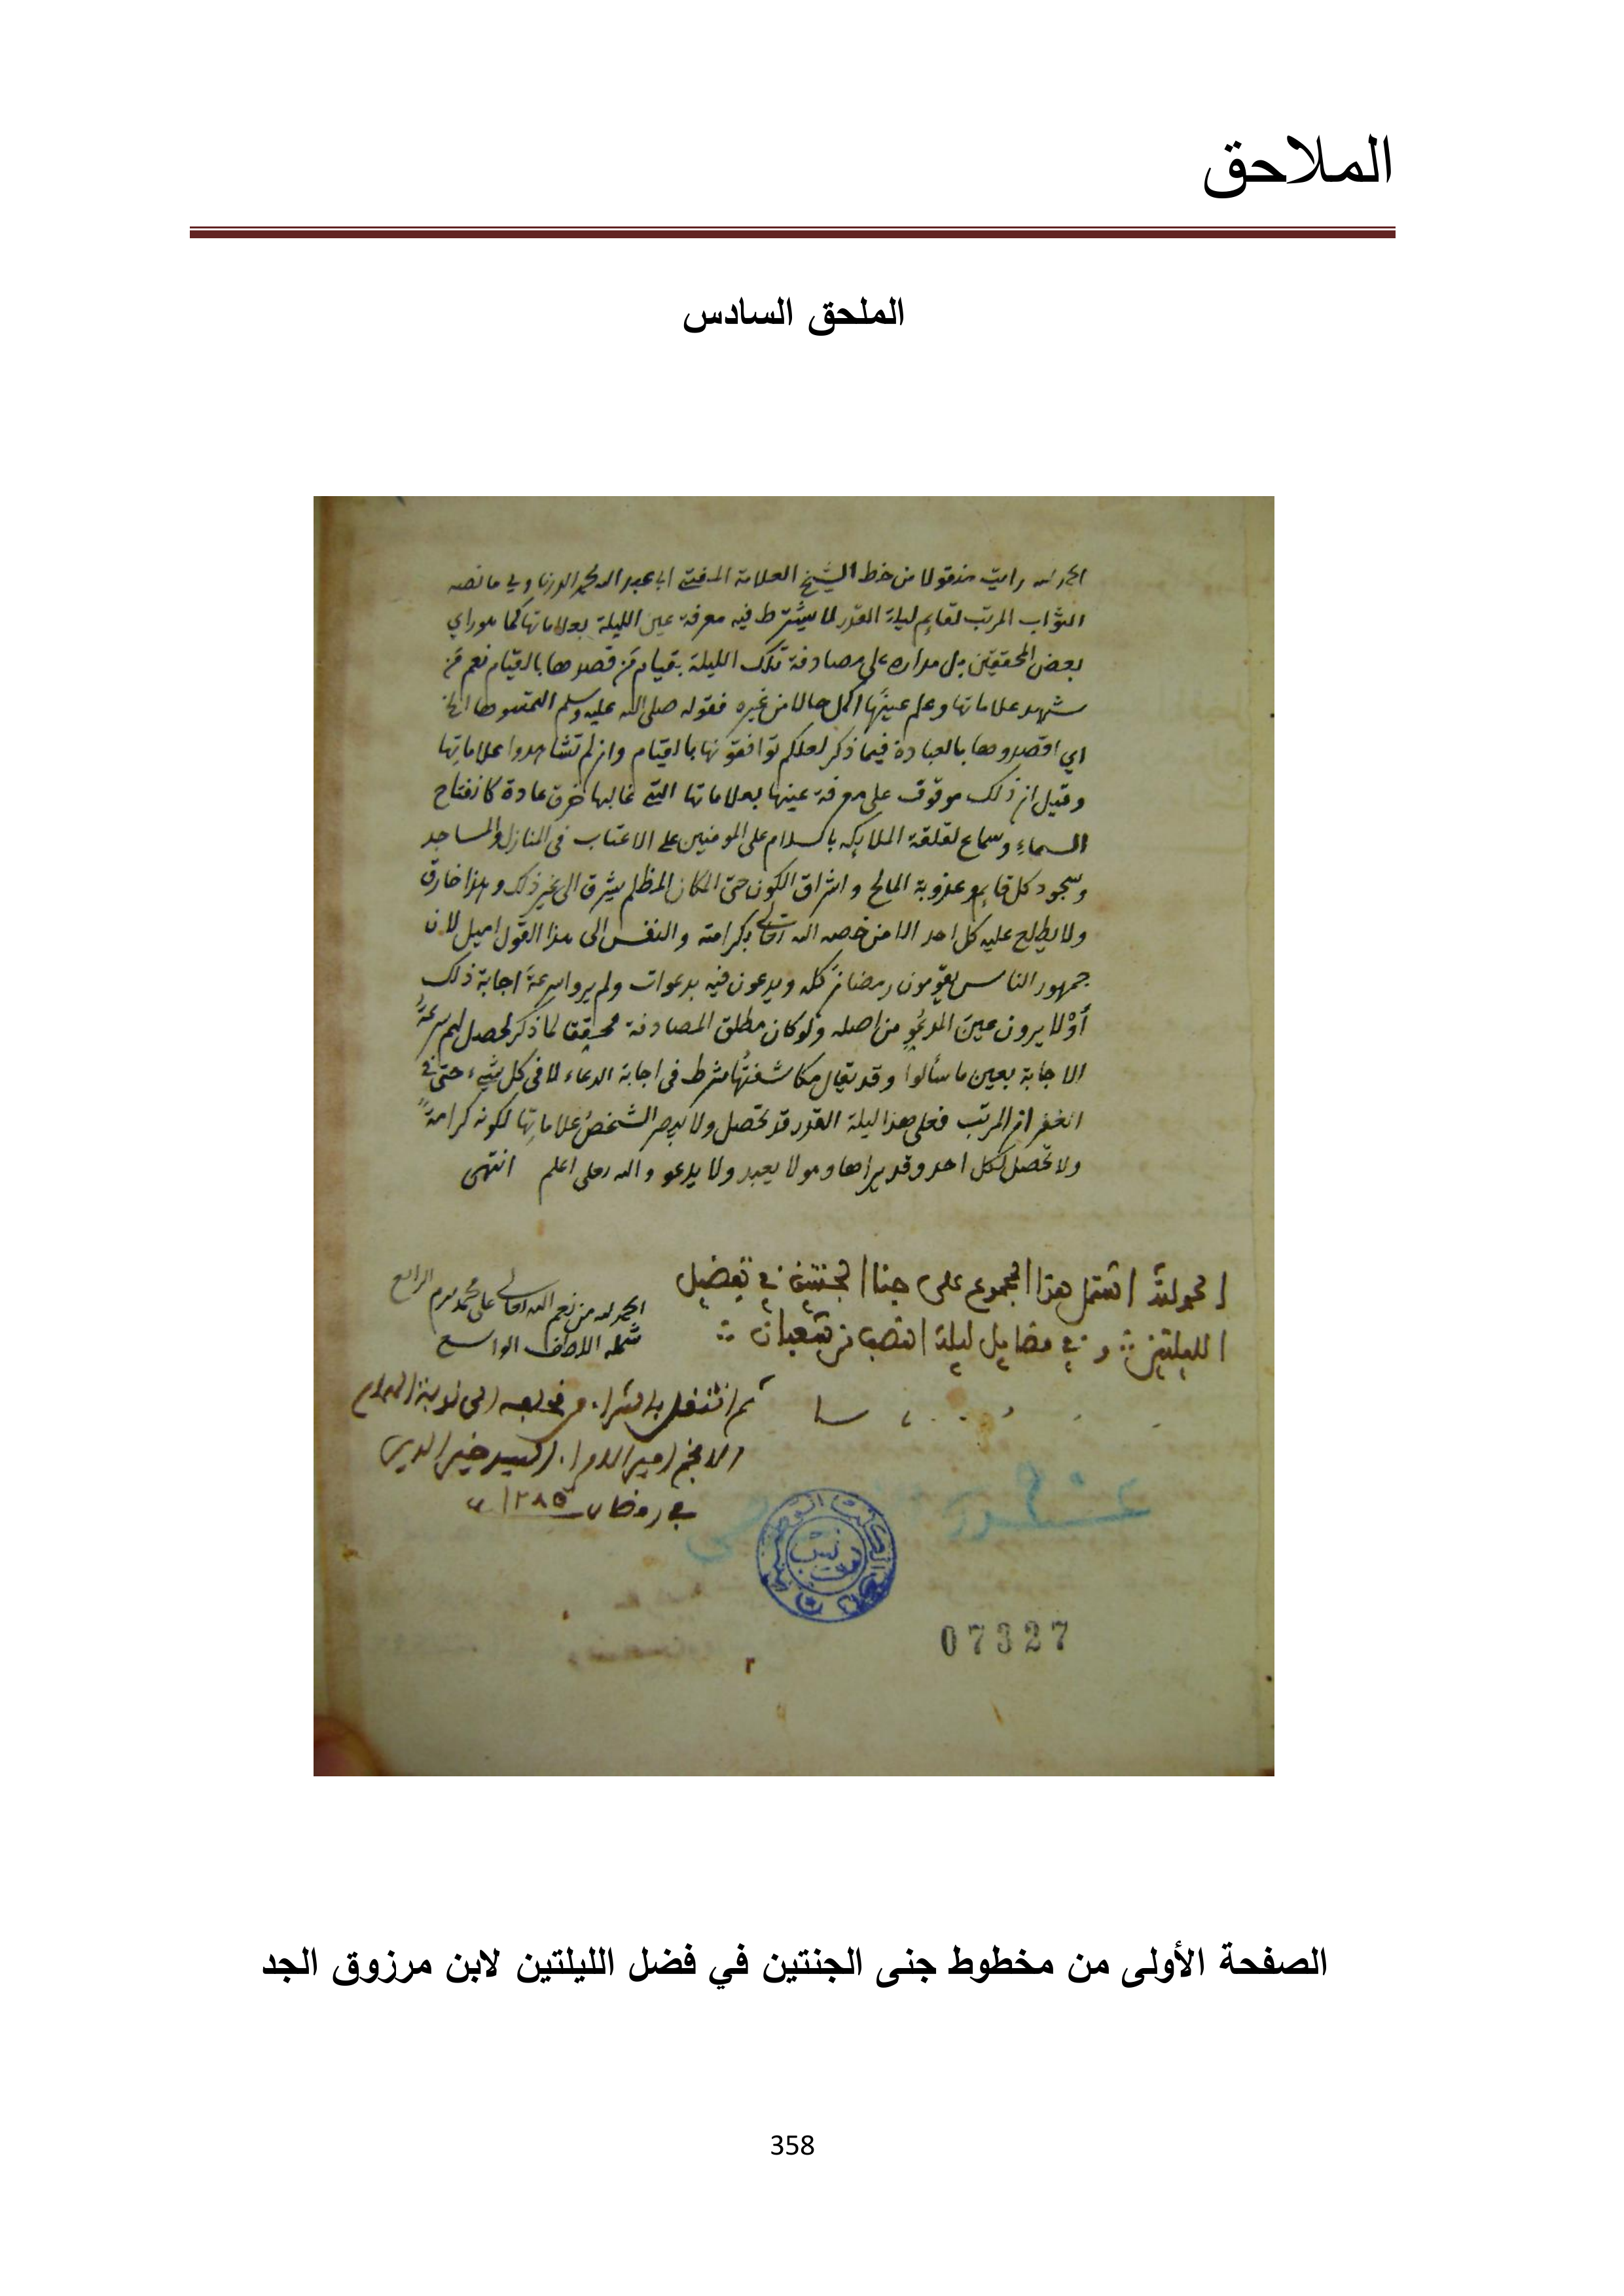 الملاحق
الملحق السادس
الحمد لله رايت منقولا من خط الشيخ العلامة المفتي ابي عبد الله محمد ما نصه
الثواب المرتب لقايم ليلة القدر لا يشترط فيه معرفة عين الليلة بعلاماتها كما هو راي
بعض المحققين بل مداره على مصادفة تلك الليلة بقيام من قصدها بالقيام نعم من
شهد علاماتها وعلم عينها اكمل حالا من غيره فقوله صلى الله عليه وسلم التمسوها الخ
اي اقصدوها بالعبادة فيما ذكر لعلكم توافقونها بالقيام وان لم تشاهدوا علاماتها
وقيل ان ذلك موقوف على معرفة عينها بعلاماتها التي غالبها خرق عادة كانفتاح
السماء وسماع لقلقة الملايكه بالسلام على المومنين على الاعتاب في المنازل والمساجد
وسجود كل قايم وعذوبة المالح واشراق الكون حتى المكان المظلم يشرق الى غير ذلك وهذا خارق
ولا يطلع عليه كل احد الا من خصه الله تعالى بكرامته والنفس الى هذا القول اميل لان
جمهور الناس يقومون رمضان كله ويدعون فيه بدعوات ولم يروا سرعة اجابة ذلك
أوْ لا يرون عين المدعُوِّ من اصله ولو كان مطلق المصادفة محققا لما ذكر لحصل لهم سرعةُ
الاجابة بعين ما سألوا وقد يقال مكاشفتُها شرط في اجابة الدعاء لا في كل شيء حتى في
الغفران المرتب فعلى هذا ليلة القدر قد تحصل ولا يبصر الشخصُ علاماتِها لكونه كرامةً
ولا تحصل لكل احد وقد يراها وهو لا يعبد ولا يدعو والله تعلى اعلم انتهى
الحمد لله اشتمل هذا المجموع على جنا الجنتين في تفضيل
الليلتين وفي فضايل ليلة النصف من شعبان
الحمد لله من نعم الله تعالى على محمد بيرم الرابع
شمله اللطف الواسع
ثم انتقل بالشراء من الى نوبة الهمام
الافخم امير الامراء السيد خير الدين
في رمضان ١٢٨٥
تونس
07327
الصفحة الأولى من مخطوط جنى الجنتين في فضل الليلتين لابن مرزوق الجد
358